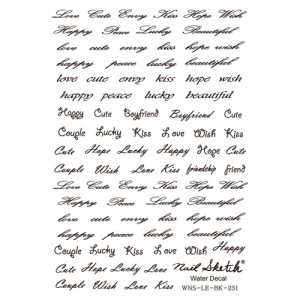 Love Cute Envy Kiss Hope Wish
Happy Peace Lucky Beautiful
love cute envy kiss hope wish
happy peace lucky beautiful
love cute envy kiss hope wish
happy peace lucky beautiful
Happy Cute Boyfriend Boyfriend Cute
Couple Lucky Kiss Love Wish Kiss
Cute Hope Lucky Happy Hope Cute
Couple Wish Love Kiss friendship friend
Love Cute Envy Kiss Hope Wish
Happy Peace Lucky Beautiful
love cute envy kiss hope wish
Couple Lucky Kiss Love Wish Kiss
Cute Hope Lucky Happy Hope Cute
Couple Wish Love Kiss Nail Sketch®
Water Decal
WNS-LE-BK-231